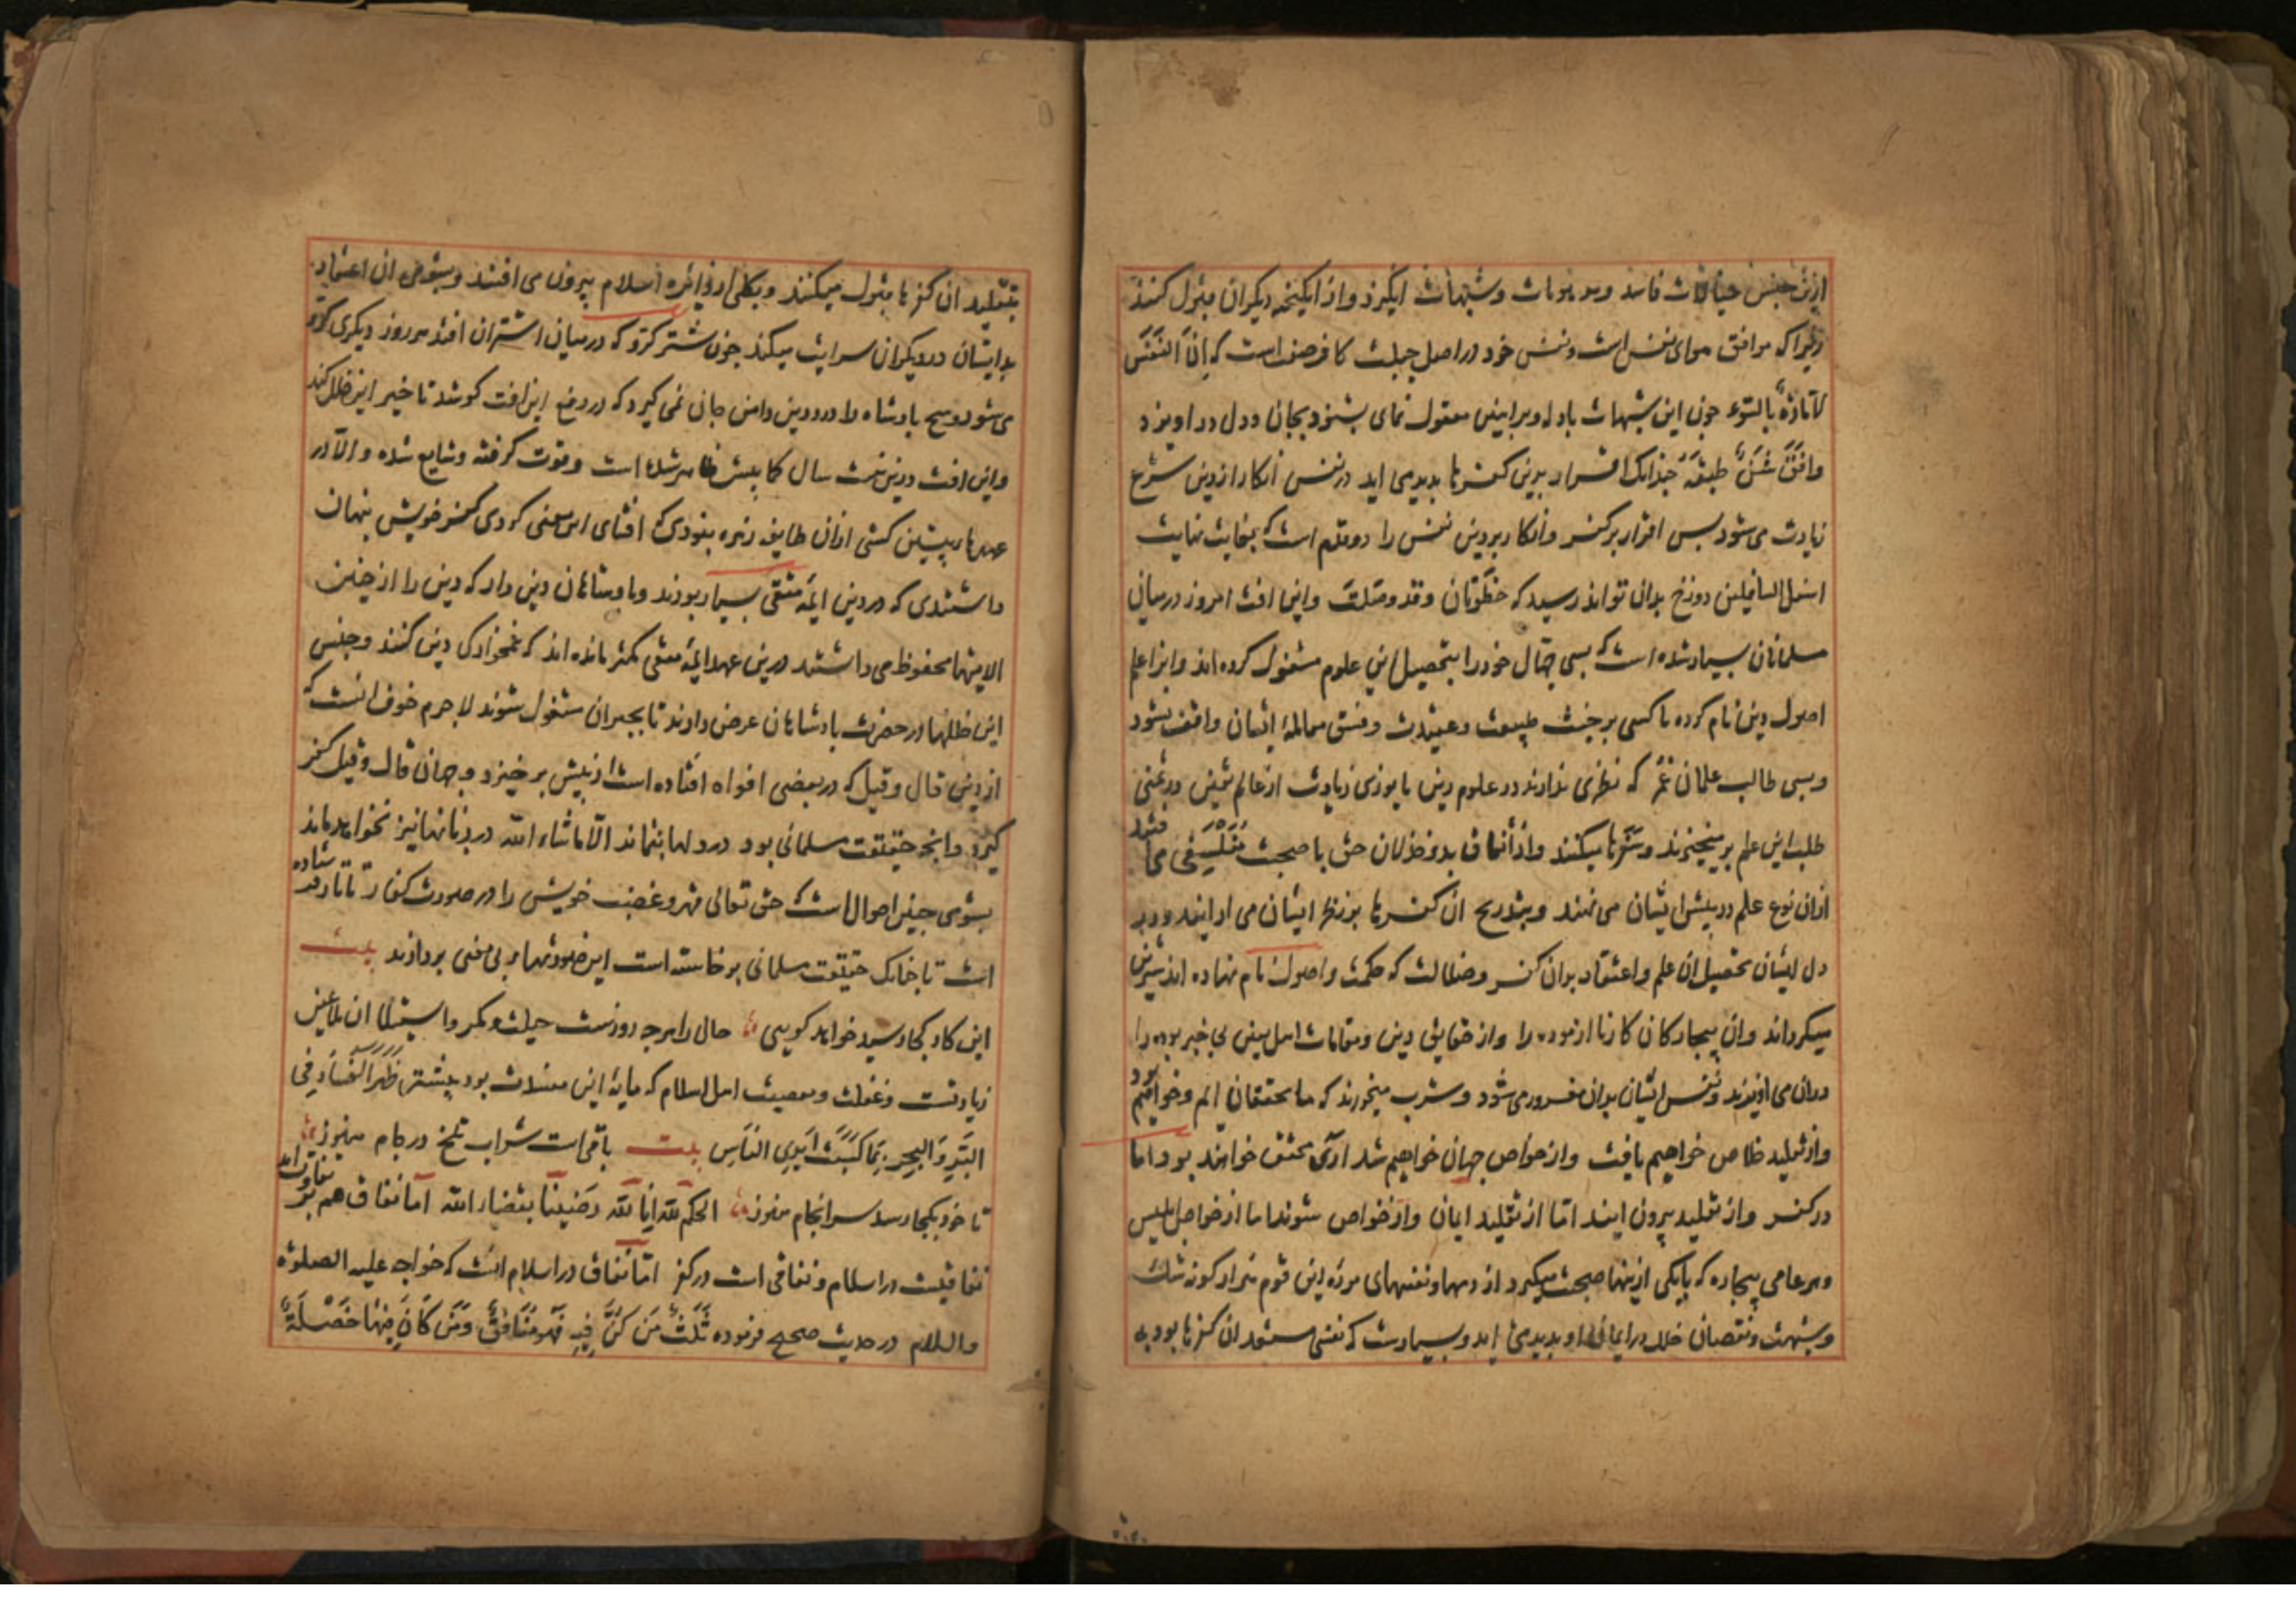 ازین جنس خیالات فاسد و موهومات و شبهات انگیزد و از انگیخته دیگران قبول کنند
زیرا که موافق هوای نفس است و نفس خود در اصل جبلت کافر صفت است که اِنَّ النَّفْسَ
لاَمّارَةٌ بالسّوء چون این شبهات با دله و براهین معقول نمای بشنود بجان و دل در اویزد
وافَقَ شَنٌّ طبقَه چندانک اقرار بدین کفرها بدیدمی اید در نفس انکار از دین شرع
زیادت می شود پس اقرار بر کفر و انکار بر دین نفس را دو قدم است که بغایت نهایت
اسفل السافلین دوزخ بدان تواند رسید که خطوتان وقد وصلت و این افت امروز در میان
مسلمانان بسیار شده است که بسی جهال خود را بتحصیل این علوم مشغول کرده اند و انرا علم
اصول دین نام کرده تا کسی بر خبث طبیعت و عقیدت و فسق معامله ایشان واقف نشود
و بسی طالب علمان غُمر که نظری ندارند در علوم دین یا نوری زیادت از عالم یقین در تمنی
طلب این علم بر میخیزند و سفرها میکنند و از اتفاق بد و خذلان حق با صحبت متفلسفی می افتند
ازان نوع علم در پیش ایشان می نهند و بتدریج ان کفرها بر نظر ایشان می ارایند و در
دل ایشان تحصیل ان علم و اعتقاد بدان کفر و ضلالت که حکمت و اصول نام نهاده اند شیرین
میگرداند و ان بیچارگان کار نا ازموده را و از حقایق دین و مقامات اهل یقین بی خبر بوده را
دران می اویزند و نفس ایشان بدان مغرور می شود و شرب میخورند که ما محققان ایم و خواهیم بود
و از تقلید خلاص خواهیم یافت و از خواص جهان خواهیم شد اری محقق خواهند بود اما
در کفر و از تقلید بیرون ایند اما از تقلید ایمان و از خواص شوند اما از خواص ابلیس
و هر عامی بیچاره که با یکی از ینها صحبت میگیرد از دمها و نفسهای مرده این قوم هزار گونه شک
و شبهت و نقصان خلل در ایمان او بدیدمی اید و بسیارست که نفسی مستعد ان کفرها بود به
بتقلید ان کفرها قبول میکنند و بکلی از دایره اسلام بیرون می افتند و بشومی ان اعتقاد
بد ایشان در دیگران سرایت میکند چون شتر گرگن که در میان اشتران افتد هر روز دیگری گرگن
می شود و هیچ پادشاه را درد دین دامن جان نمی گیرد که در دفع این افت کوشد تا خیر این خلل کند
و این افت درین شصت سال کما بیش ظاهر شده است و قوت گرفته و شایع شده و الا در
عهد ما پیشین کسی ازان طایفه زهره نبودی که افشای این معنی کردی کفر خویش پنهان
داشتندی که در دین ایمه متقی بسیار بودند و پادشاهان دین دار که دین را از چنین
الایشها محفوظ می داشتند درین عهد ایمه متقی کمتر مانده اند که غمخوارگی دین کنند و جنس
این خللها در حضرت پادشاهان عرض دارند تا بجبر ان مشغول شوند لاجرم خوف انست که
ازین قال و قیل که در بعضی افواه افتاده است از پیش بر خیزد و جهان قال و قیل کفر
گیرد و انچه حقیقت مسلمانی بود در دلها بنماند الا ماشاء الله در زبانها نیز نخواهد ماند
بشومی چنین احوال است که حق تعالی قهر و غضب خویش را در صورت کفار تاتار فرستاده
است تا چنانک حقیقت مسلمانی بر خاسته است این صورتهای بی معنی بردارند بیت
این کار کجا رسید خواهد گویی حالی را هر چه روزست حیلت و مکر و استیلا ان ملاعین
زیادتست و غفلت و معصیت اهل اسلام که مایه این مفسدت بود بیشتر ظَهَرَ الفَسَادُ فِی
البَرِّ وَ البَحرِ بِمَا کَسَبَتْ اَیدِی النَّاسِ بیت باقیات شراب تلخ در جام هنوز
تا خود بکجا رسد سرانجام هنوز الحکم لله انا لله رضینا بقضاء الله اما نفاق هم بر تفاوت اید
نفاقیست در اسلام و نفاقی است در کفر اما نفاق در اسلام انست که خواجه علیه الصلوة
والسلام در حدیث صحیح فرموده ثَلٰثٌ مَن کُنَّ فِیهِ فَهُوَ مُنَافِقٌ وَمَن کَانَ فِیهَا خَصْلَةٌ